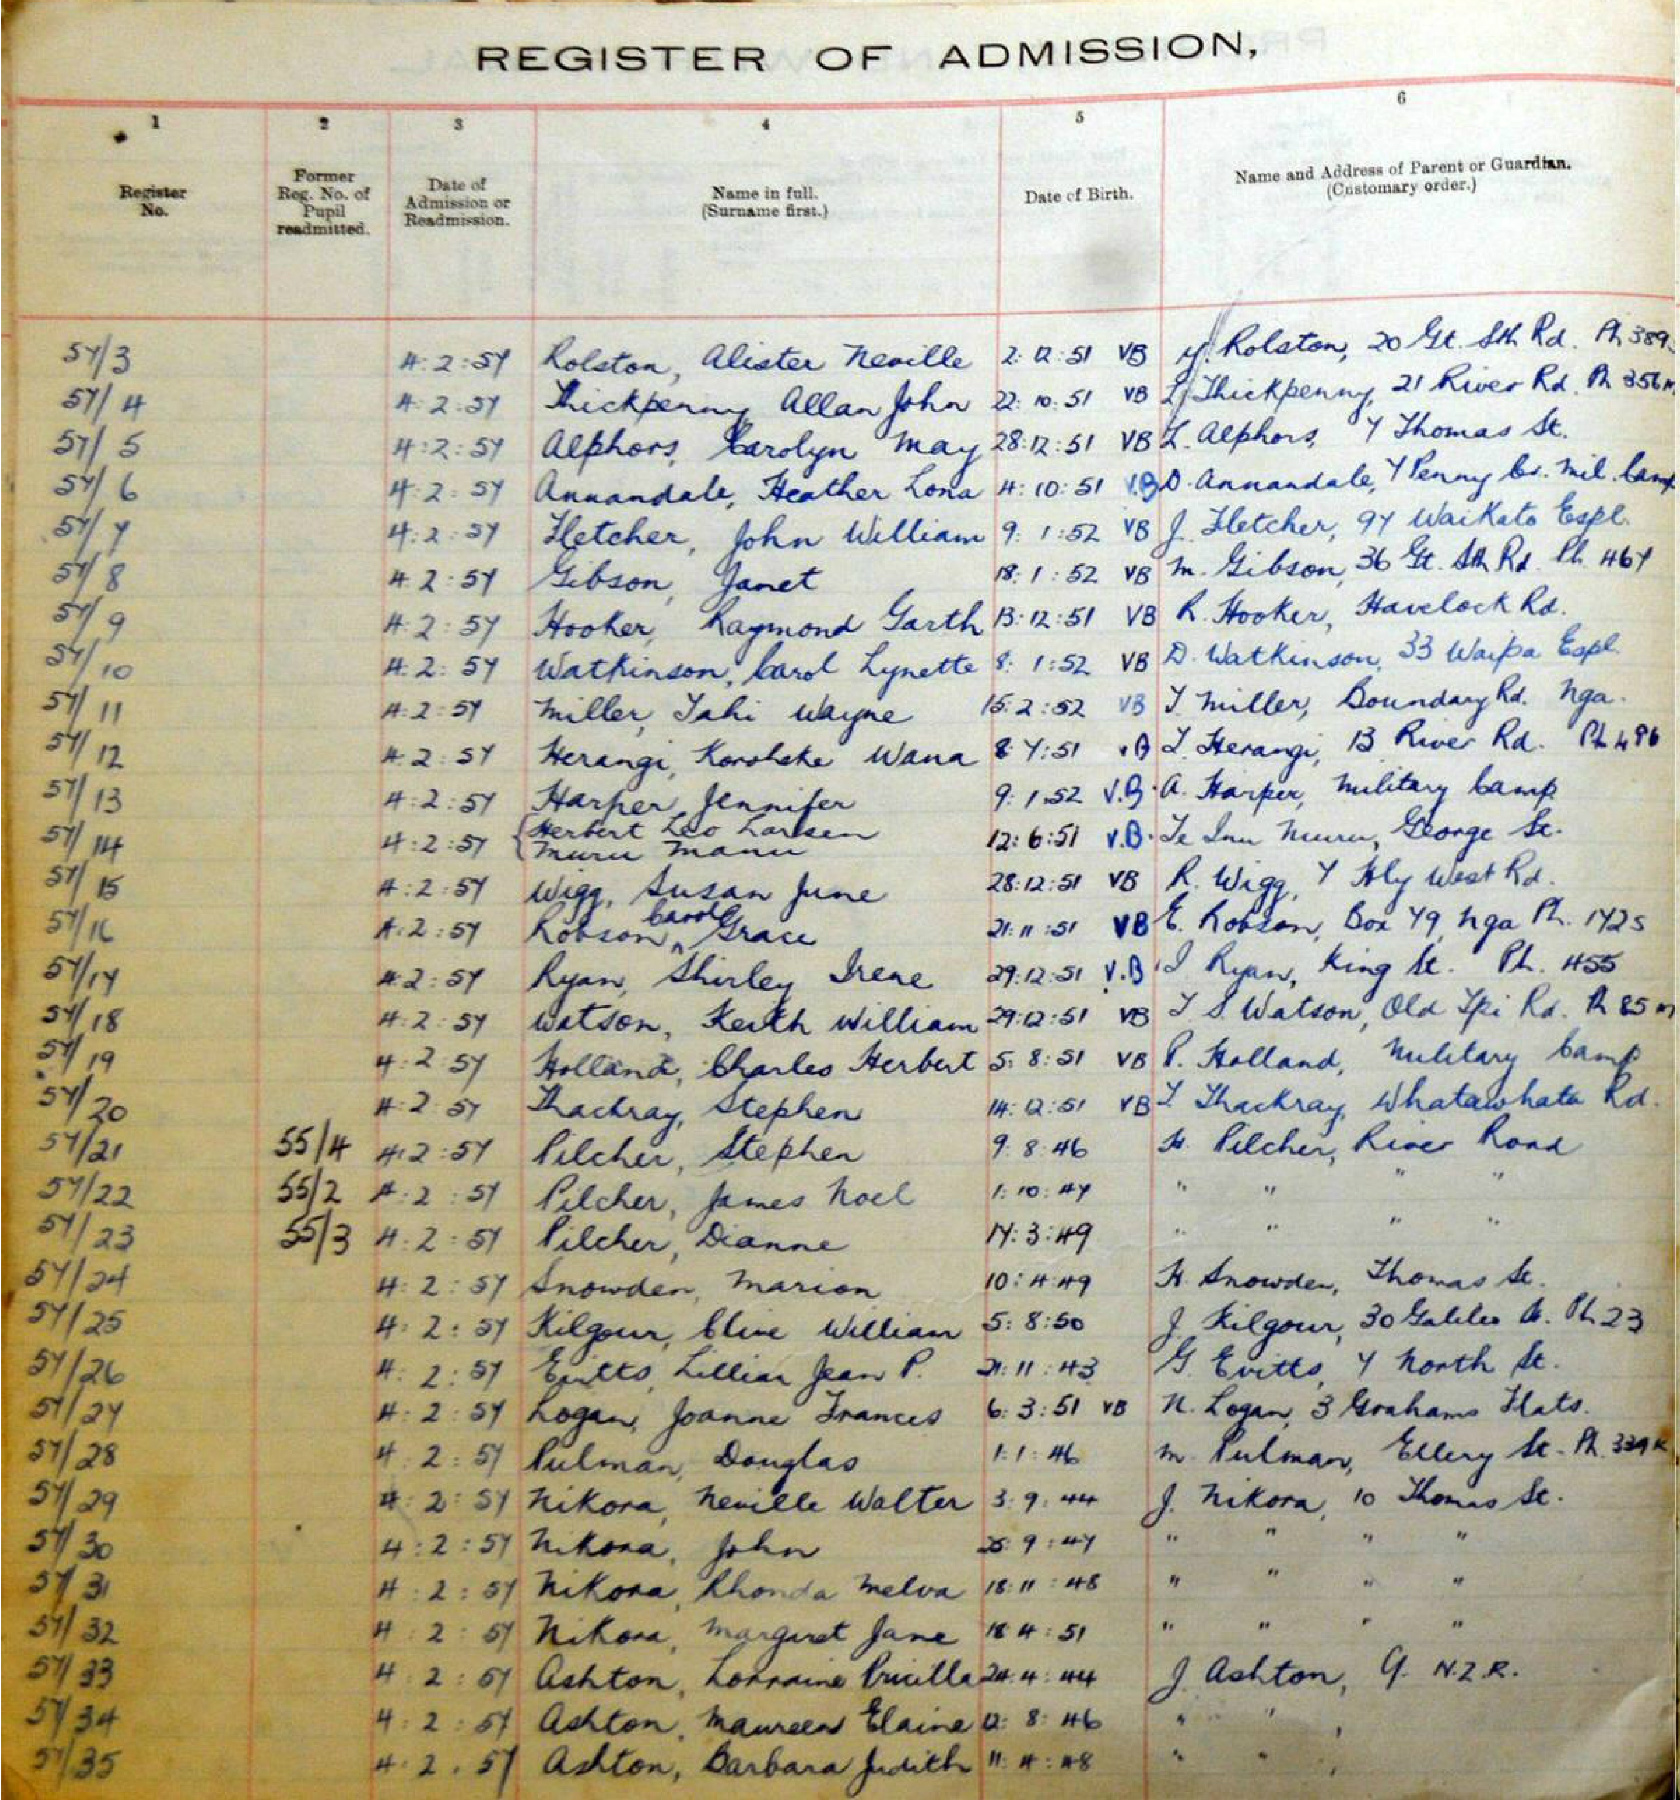 REGISTER OF ADMISSION,
1 2 3 4 5 6
Register No. Former Reg. No. of Pupil readmitted. Date of Admission or Readmission. Name in full. (Surname first.) Date of Birth. Name and Address of Parent or Guardian. (Customary order.)
57/3 4:2:57 Rolston, Alister Neville 2:12:51 VB Rolston, 20 Gt. Sth Rd. Ph 389
57/4 4:2:57 Thickpenny Allan John 22:10:51 VB Thickpenny, 21 River Rd. Ph 356m
57/5 4:2:57 Alphors, Carolyn May 28:12:51 VB L. Alphors, 7 Thomas St.
57/6 4:2:57 Annandale, Heather Lona 4:10:51 V.B D. Annandale, 7 Penny Cr. Mil. Camp
57/7 4:2:57 Fletcher, John William 9:1:52 VB J. Fletcher, 97 Waikato Espl.
57/8 4:2:57 Gibson, Janet 18:1:52 VB M. Gibson, 36 Gt. Sth Rd. Ph. 467
57/9 4:2:57 Hooker, Raymond Garth 13:12:51 VB R. Hooker, Havelock Rd.
57/10 4:2:57 Watkinson, Carol Lynette 8:1:52 VB D. Watkinson, 33 Waipa Espl.
57/11 4:2:57 Miller, Tahi Wayne 15:2:52 VB T. Miller, Boundary Rd. Nga.
57/12 4:2:57 Herangi, Wana 8:7:51 VB T. Herangi, 13 River Rd. Ph 496
57/13 4:2:57 Harper, Jennifer 9:1:52 V.B. A. Harper, Military Camp
57/14 4:2:57 { Herbert Leo Larsen
Muru Manu 12:6:51 V.B. Te Inu Muru, George St.
57/15 4:2:57 Wigg, Susan June 28:12:51 VB R. Wigg, 7 Hly West Rd.
57/16 4:2:57 Robson, Carole Grace 21:11:51 VB E. Robson, Box 79, Nga Ph. 172s
57/17 4:2:57 Ryan, Shirley Irene 29:12:51 V.B I Ryan, King St. Ph. 455
57/18 4:2:57 Watson, Keith William 29:12:51 VB T S. Watson, Old Tpi Rd. Ph 85m
57/19 4:2:57 Holland, Charles Herbert 5:8:51 VB P. Holland, Military Camp
57/20 4:2:57 Thackray, Stephen 14:12:51 VB T. Thackray, Whatawhata Rd.
57/21 55/4 4:2:57 Pilcher, Stephen 9:8:46 H. Pilcher, River Road
57/22 55/2 4:2:57 Pilcher, James Noel 1:10:47 " " " "
57/23 55/3 4:2:57 Pilcher, Dianne 17:3:49 " " " "
57/24 4:2:57 Snowden, Marion 10:4:49 H. Snowden, Thomas St.
57/25 4:2:57 Kilgour, Clive William 5:8:50 J. Kilgour, 30 Galileo St. Ph 23
57/26 4:2:57 Evitts, Lillian Jean P. 21:11:43 G. Evitts, 7 North St.
57/27 4:2:57 Logan, Joanne Frances 6:3:51 VB N. Logan, 3 Grahams Flats.
57/28 4:2:57 Pulman, Douglas 1:1:46 M. Pulman, Ellery St. Ph. 339K
57/29 4:2:57 Nikora, Neville Walter 3:9:44 J. Nikora, 10 Thomas St.
57/30 4:2:57 Nikora, John 25:9:47 " " " "
57/31 4:2:57 Nikora, Rhonda Melva 18:11:48 " " " "
57/32 4:2:57 Nikora, Margaret Jane 18:4:51 " " " "
57/33 4:2:57 Ashton, Lorraine Pricilla 24:4:44 J. Ashton, 9. N.Z.R.
57/34 4:2:57 Ashton, Maureen Elaine 12:8:46 " " "
57/35 4:2:57 Ashton, Barbara Judith 11:4:48 " " "